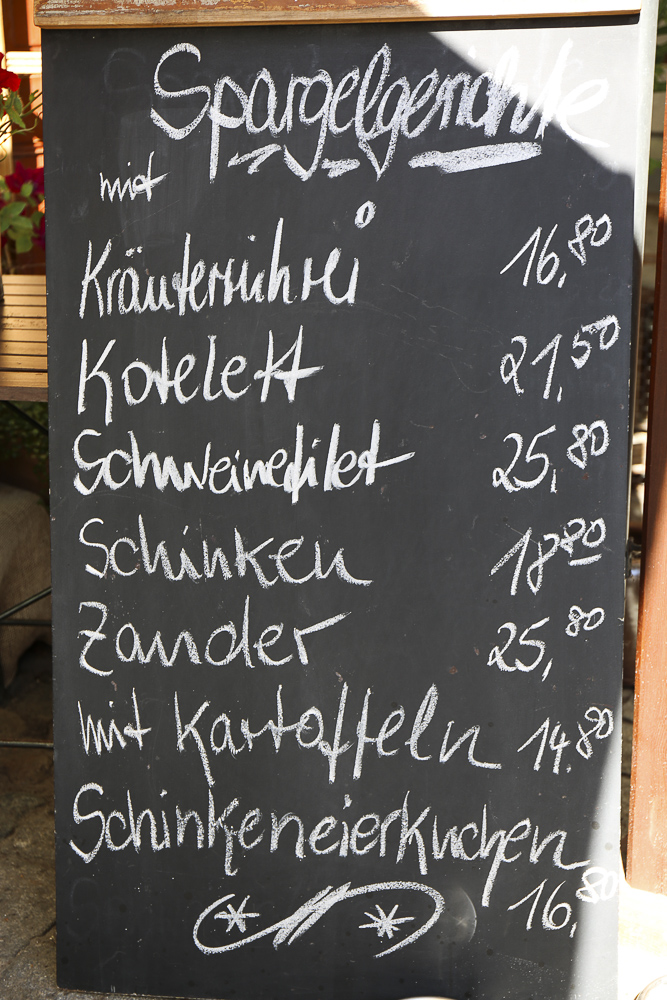 Spargelgerichte
mit
Kräuterrührei 16,80
Kotelett 21,50
Schweinefilet 25,80
Schinken 18 80
Zander 25,80
mit Kartoffeln 14.80
Schinkeneierkuchen
16,80